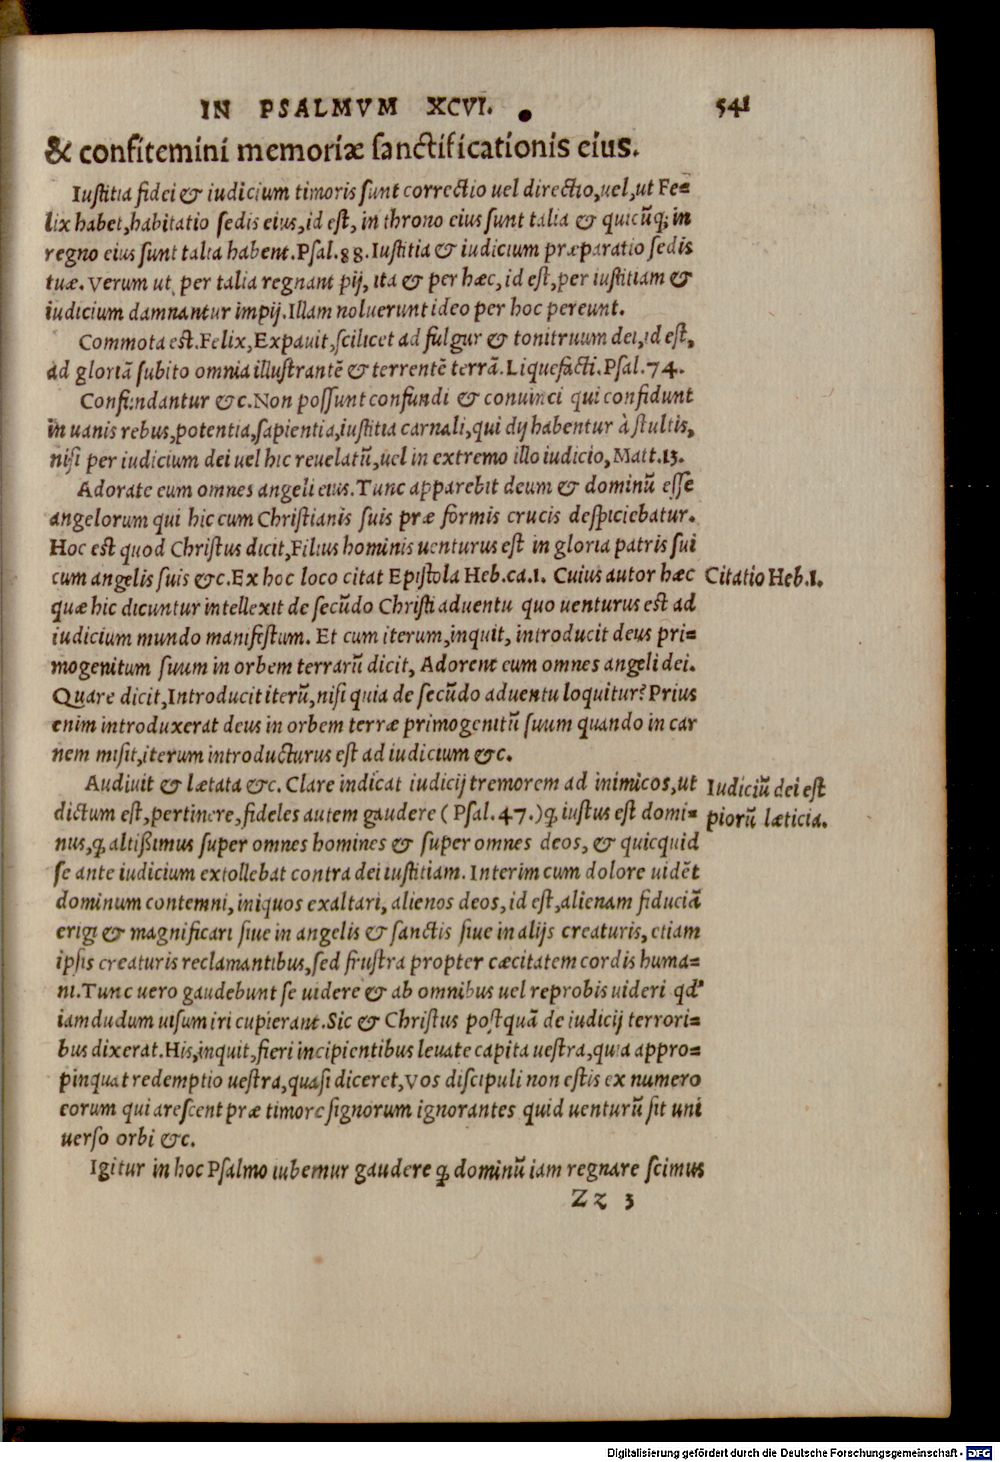 IN PSALMVM XCVI. 541
& confitemini memoriæ ſanctificationis eius.
Iuſtitia fidei & iudicium timoris ſunt correctio uel directio, uel, ut Fe=
lix habet, habitatio ſedis eius, id eſt, in throno eius ſunt talia & quicūq; in
regno eius ſunt talia habent. Pſal. 88. Iuſtitia & iudicium præparatio ſedis
tuæ. Verum ut per talia regnant pij, ita & per hæc, id eſt, per iuſtitiam &
iudicium damnantur impij. Illam noluerunt ideo per hoc pereunt.
Commota eſt. Felix, Expauit, ſcilicet ad fulgur & tonitruum dei, id eſt,
ad gloriā ſubito omnia illuſtrantē & terrentē terrā. Liquefacti. Pſal. 74.
Confundantur &c. Non poſſunt confundi & conuinci qui confidunt
in uanis rebus, potentia, ſapientia, iuſtitia carnali, qui dij habentur à ſtultis,
niſi per iudicium dei uel hic reuelatū, uel in extremo illo iudicio, Matt. 13.
Adorate eum omnes angeli eius. Tunc apparebit deum & dominū eſſe
angelorum qui hic cum Chriſtianis ſuis præ formis crucis deſpiciebatur.
Hoc eſt quod Chriſtus dicit, Filius hominis uenturus eſt in gloria patris ſui
cum angelis ſuis &c. Ex hoc loco citat Epiſtola Heb. ca. 1. Cuius autor hæc
Citatio Heb. 1.
quæ hic dicuntur intellexit de ſecūdo Chriſti aduentu quo uenturus eſt ad
iudicium mundo manifeſtum. Et cum iterum, inquit, introducit deus pri=
mogenitum ſuum in orbem terrarū dicit, Adorent eum omnes angeli dei.
Quare dicit, Introducit iterū, niſi quia de ſecūdo aduentu loquitur? Prius
enim introduxerat deus in orbem terræ primogenitū ſuum quando in car
nem miſit, iterum introducturus eſt ad iudicium &c.
Audiuit & lætata &c. Clare indicat iudicij tremorem ad inimicos, ut
Iudiciū dei eſt
dictum eſt, pertinere, fideles autem gaudere (Pſal. 47.) ꝙ iuſtus eſt domi=
piorū læticia.
nus, ꝙ altißimus ſuper omnes homines & ſuper omnes deos, & quicquid
ſe ante iudicium extollebat contra dei iuſtitiam. Interim cum dolore uidēt
dominum contemni, iniquos exaltari, alienos deos, id eſt, alienam fiduciā
erigi & magnificari ſiue in angelis & ſanctis ſiue in alijs creaturis, etiam
ipſis creaturis reclamantibus, ſed fruſtra propter cæcitatem cordis huma=
ni. Tunc uero gaudebunt ſe uidere & ab omnibus uel reprobis uideri qd'
iamdudum uiſum iri cupierant. Sic & Chriſtus poſtquā de iudicij terrori=
bus dixerat. His, inquit, fieri incipientibus leuate capita ueſtra, quia appro=
pinquat redemptio ueſtra, quaſi diceret, Vos diſcipuli non eſtis ex numero
eorum qui areſcent præ timore ſignorum ignorantes quid uenturū ſit uni
uerſo orbi &c.
Igitur in hoc Pſalmo iubemur gaudere ꝙ dominū iam regnare ſcimus
Zz 3
Digitalisierung gefördert durch die Deutsche Forschungsgemeinschaft - DFG